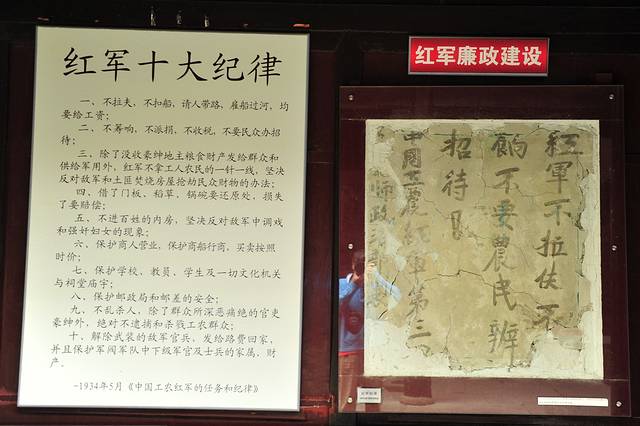 红军十大纪律
一、不拉夫，不扣船，请人带路、雇船过河，均
要给工资；
二、不筹响，不派捐，不收税，不要民众办招
待；
三、除了没收豪绅地主粮食财产发给群众和
供给军用外，红军不拿工人农民的一针一线，坚决
反对敌军和土匪焚烧房屋抢劫民众财物的办法；
四、借了门板、稻草、锅碗要还原处，损失
了要赔偿；
五、不进百姓的内房，坚决反对敌军中调戏
和强奸妇女的现象；
六、保护商人营业，保护商船行商，买卖按照
时价；
七、保护学校、教员、学生及一切文化机关
与祠堂庙宇；
八、保护邮政局和邮差的安全；
九、不乱杀人，除了群众所深恶痛绝的官吏
豪绅外，绝对不逮捕和杀戮工农群众；
十、解除武装的敌军官兵，发给路费回家，
并且保护军阀军队中下级军官及士兵的家属，财
产。
-1934年5月《中国工农红军的任务和纪律》
红军廉政建设
紅軍不拉伕不
餉不要農民辦
招待
中國工農紅軍第三
師政